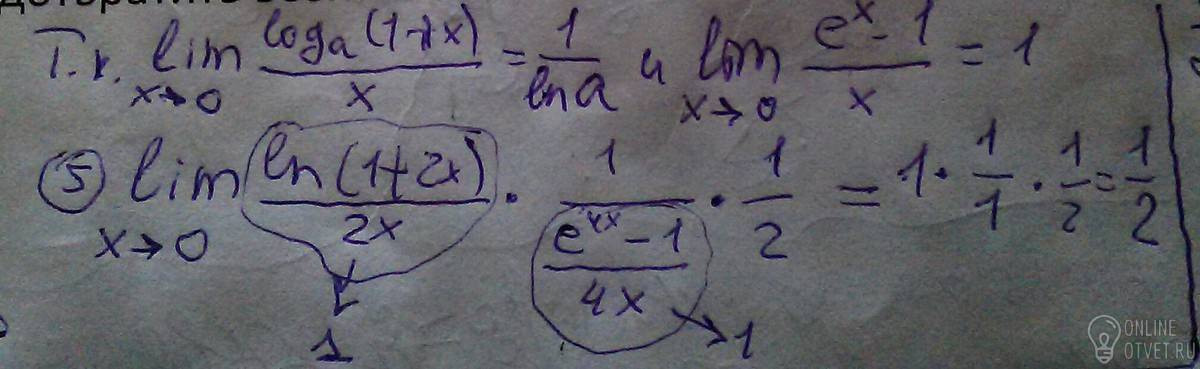 Т.к. lim x→0 log_a(1+x)/x = 1/ln a и lim x→0 (e^x - 1)/x = 1
(5) lim x→0 ln(1+2x)/2x · 1/((e^4x - 1)/4x) · 1/2 = 1 · 1/1 · 1/2 = 1/2
→ 1 → 1
ONLINE
OTVET.RU